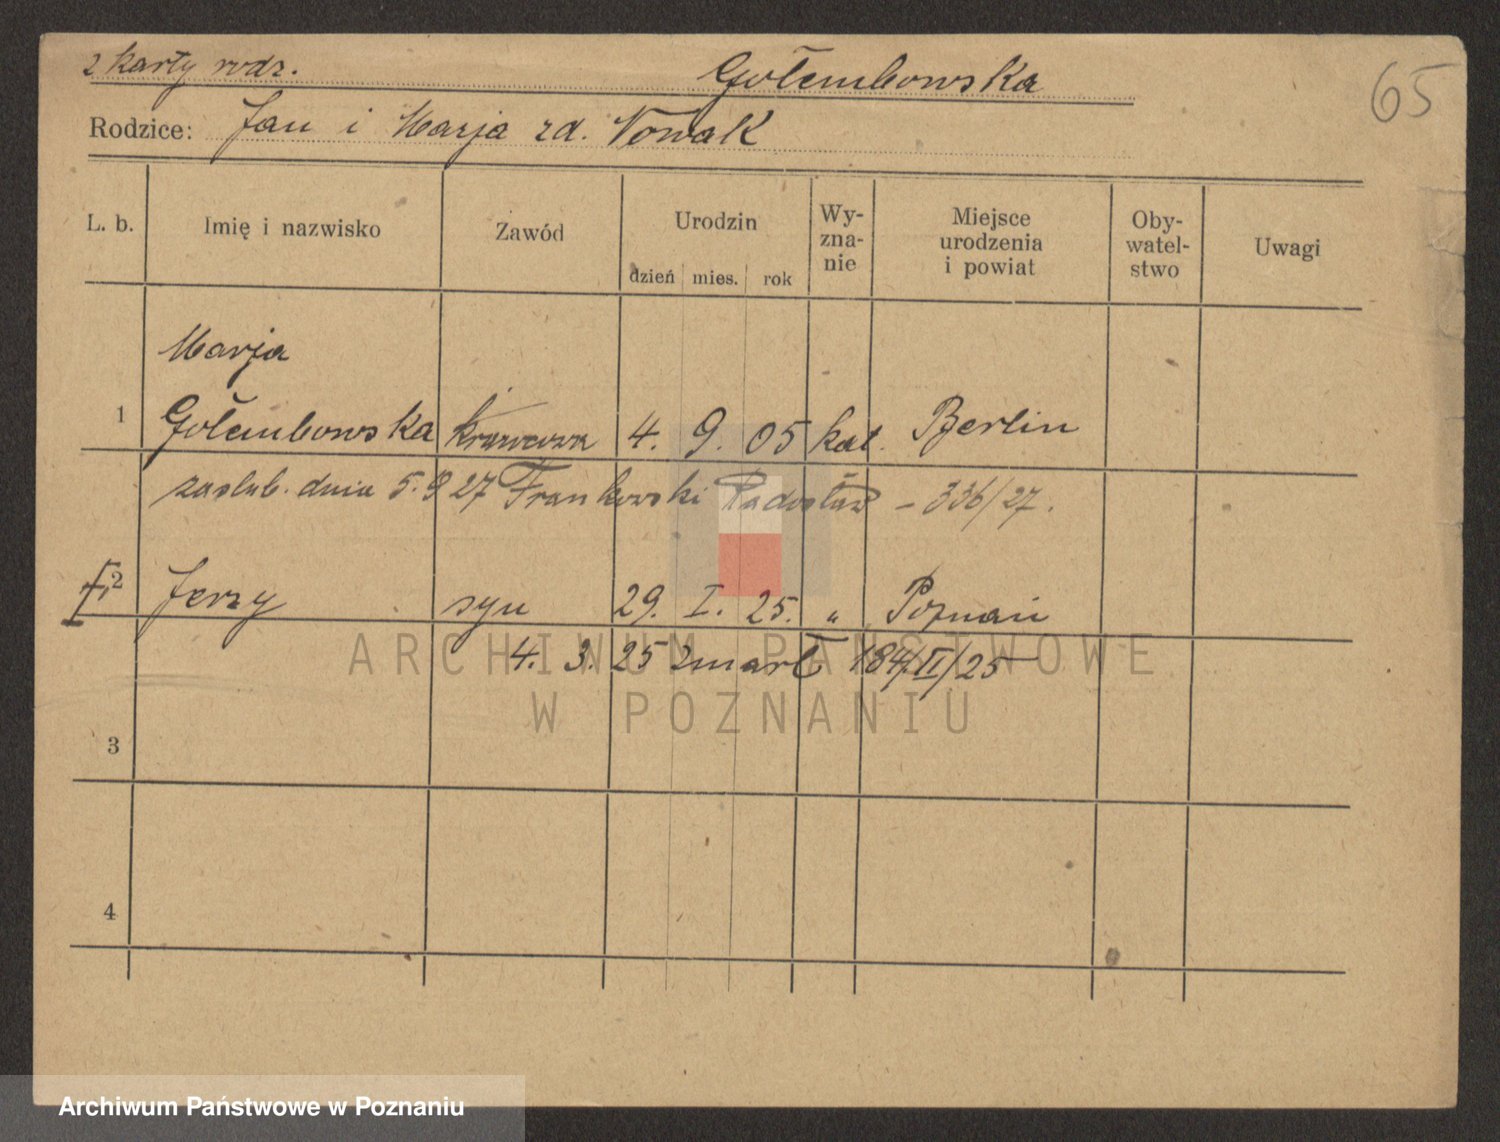 z karty rodz. Gołembowska 65
Rodzice: Jan i Marja zd. Nowak
L. b. Imię i nazwisko Zawód Urodzin dzień mies. rok Wy-zna-nie Miejsce urodzenia i powiat Oby-watel-stwo Uwagi
Marja
1 Gołembowska krawcowa 4. 9. 05 kat. Berlin
zaślub. dnia 5.9 27 Frankowski Radosław – 336/27.
2 Jerzy syn 29. I. 25. „ Poznań
4. 3. 25 zmarł 184/II/25
3
4
ARCHIWUM PAŃSTWOWE
W POZNANIU
Archiwum Państwowe w Poznaniu